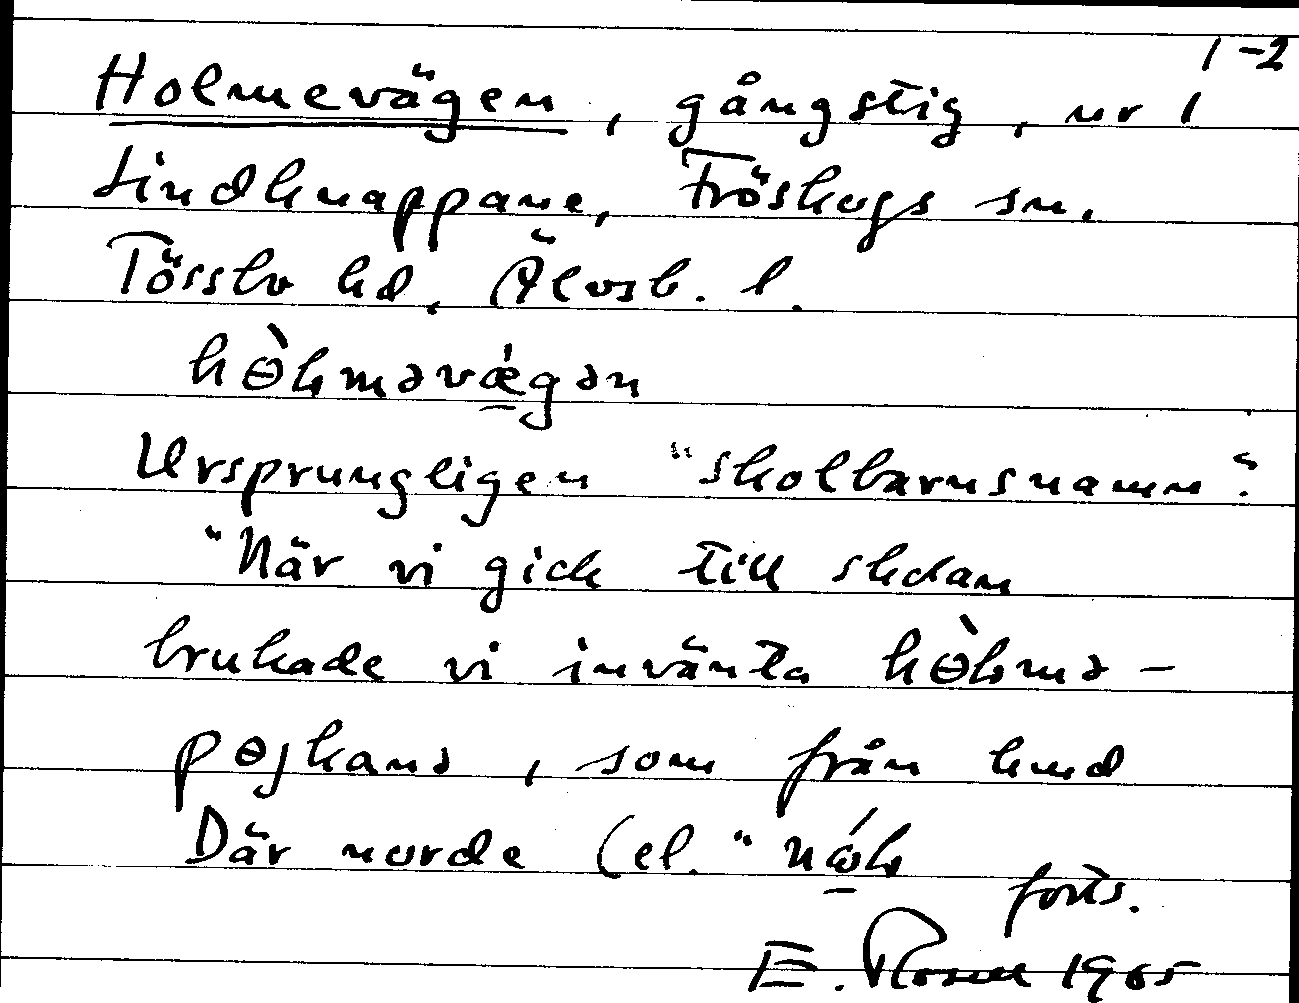 1-2
Holmevägen, gångstig, nr 1
Lindknappane, Fröskogs sn.
Tössbo hd, Älvsb. l.
hɵ̀ɫməvǽgən
Ursprungligen "skolbarnsnamn".
"När vi gick till skolan
brukade vi invänta hɵ̀ɫmə-
pɵjkanə, som från
Där norde (el. "
forts.
E. Rosell 1965